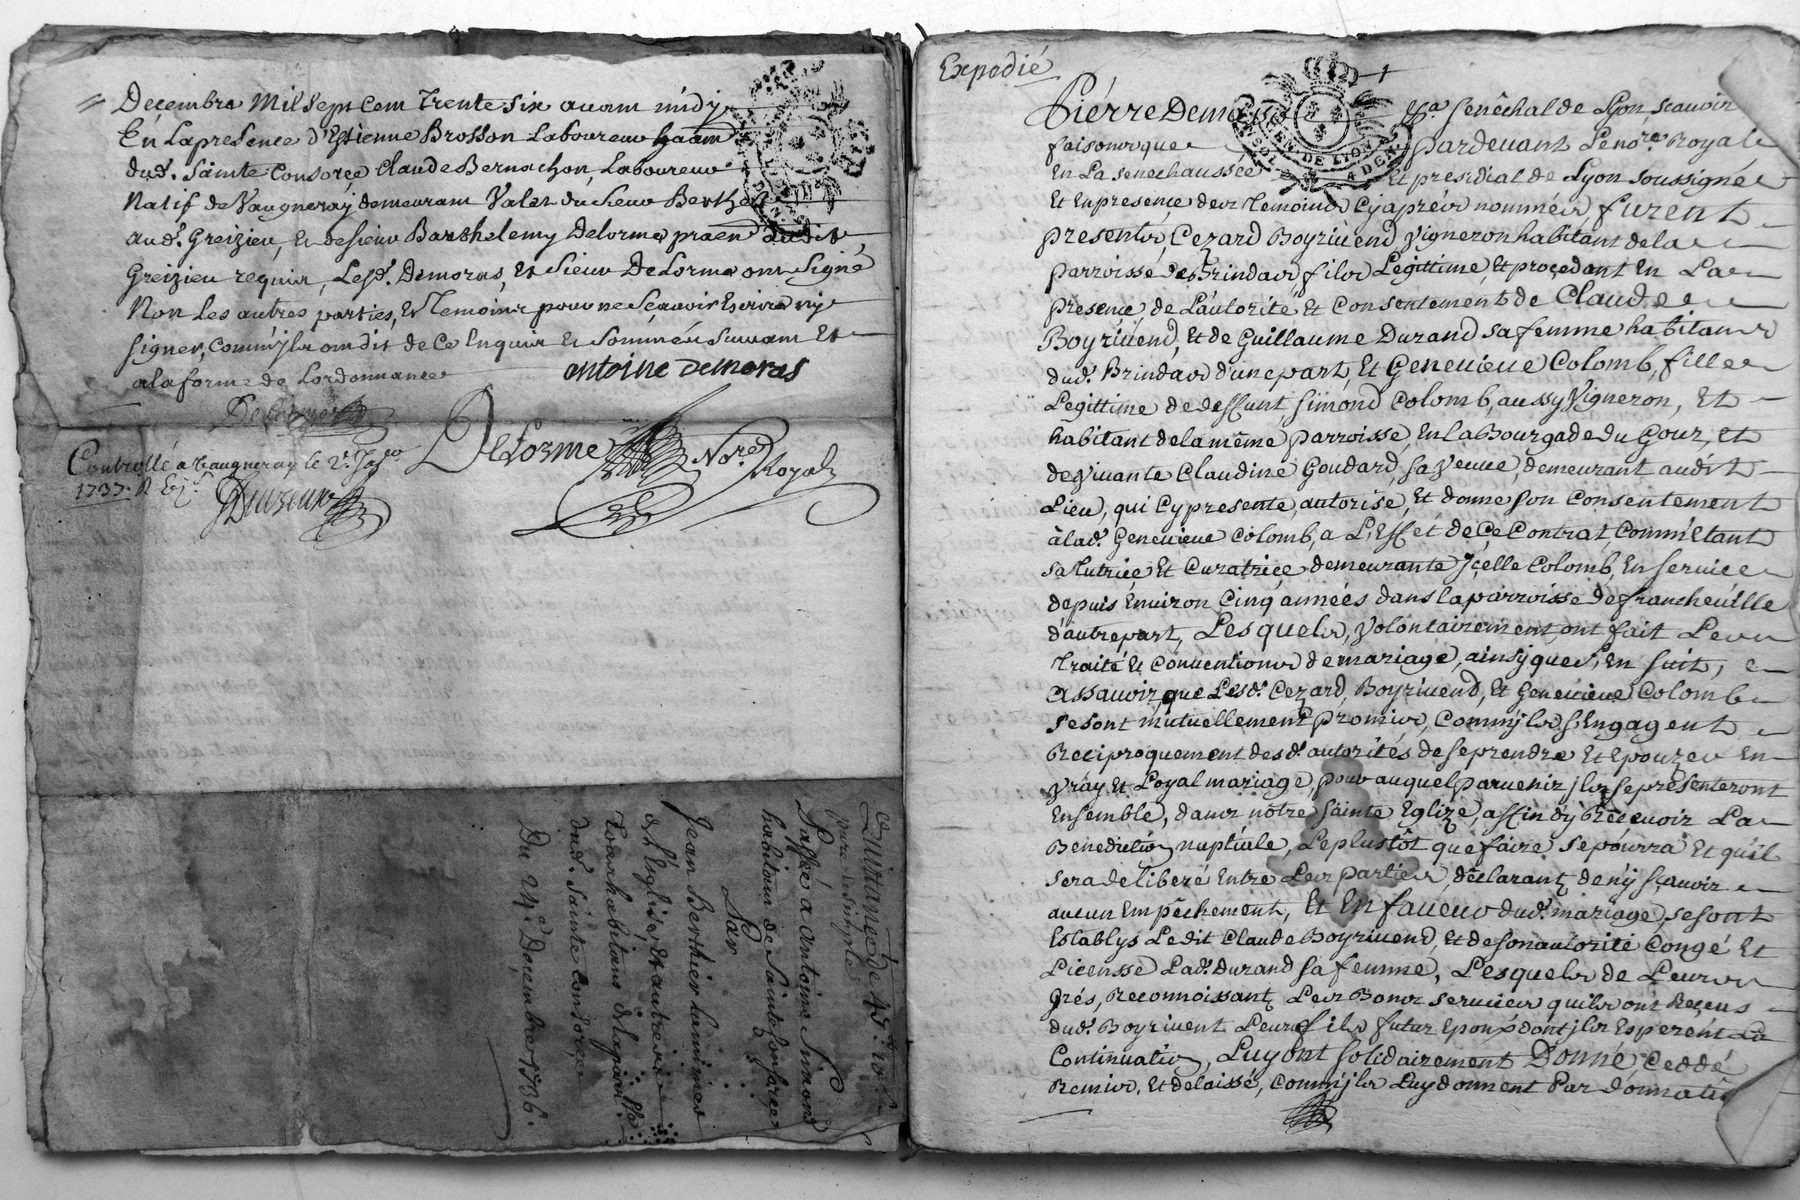 Decembre Mil sept cent trente six avant midy
En La presence d'Estienne Brosson Laboureur haant
dud. Sainte Consorçe Claude Bernachon, Laboureur
Natif de Vaugneray demeurant Valet du sieur Berthe
aud. Greizieu, Et de sieur Barthelemy Delorme praen dudit
Greizieu requis, Lesd. Demoras, Et Sieur DeLorme ont Signé
Non Les autres parties, Et Temoins pour ne Sçavoir Escrire ny
signer, comm'jls ont dit de ce Enquis Et Sommés suivant Et
a la forme de Lordonnance
antoine Demoras
Delorme
DeLorme Nore Royal
Controllé a Vaugneray le 2e
1737.
Quittance de 45
pure et simple
Passée a Antoine Simond
habitant de Sainte Consorçe
Par
Jean Berthier Luminier
de L'Eglise Et autres
Tous habitans de la parsse
dud. Sainte Consorçe
Du 24e Decembre 1736.
Expedié
Piérre Demas Sénêchal de Lyon, sçavoir
faisons que pardevant Le nore Royal
En La senechaussée Et presidial de Lyon soussigné
Et En presence des Temoins Cy aprés nommés, furent
presents, Cezard Boyrivend, Vigneron habitant de la
parroisse de Brindas, fils Legittime, Et proçedant En La
presence de L'autorité Et Consentement de Claude
Boyrivend, Et de Guillaume Durand sa femme habitans
dud. Brindas d'une part, Et Genevieve Colomb, fille
Legittime de deffunt Simond Colomb, aussy Vigneron, Et
habitant de la même parroisse, En La Bourgade du Gour, Et
de vivante Claudine Goudard, sa Veuve, demeurant audit
Lieu, qui Cy presente, autorise, Et donne son Consentement
à lad. Genevieve Colomb, a L'Effet de Ce Contrat, Comm'Etant
sa Tutrice Et Curatrice demeurante Jçelle Colomb, En service
depuis Environ Cinq années dans la parroisse de francheville
d'autre part, Lesquels, Volontairement, ont fait Les
Traité Et Conventions de mariage, ainsy que s'En suit,
assavoir, que Lesd. Cezard, Boyrivend, Et Genevieve Colomb
se sont mutuellement promis, Comm'jls s'Engagent
Reciproquement desd. autorités de se prendre Et Epouzer En
vray Et Loyal mariage, pour auquel parvenir jls se presenteront
Ensemble, dans nôtre Sainte Eglize, affin d'y Recevoir La
Benediction nuptiale, Le plustôt que faire se pourra Et quil
sera deliberé Entre Les parties, declarant de n'y sçavoir
aucun Empêchement, Et En faveur dud. mariage, se sont
Establys Ledit Claude Boyrivend, Et de son autorité Congé Et
Licensse Lad. Durand sa femme, Lesquels de Leurs
Grés, Reconnoissant Les Bons services quils ont Reçeus
dud. Boyrivent Leur fils futur Epoux dont jls Esperent La
Continuation, Luy ont solidairement Donné, Ceddé
Remis, Et delaissé, Comm'jls Luy donnent Par donnation